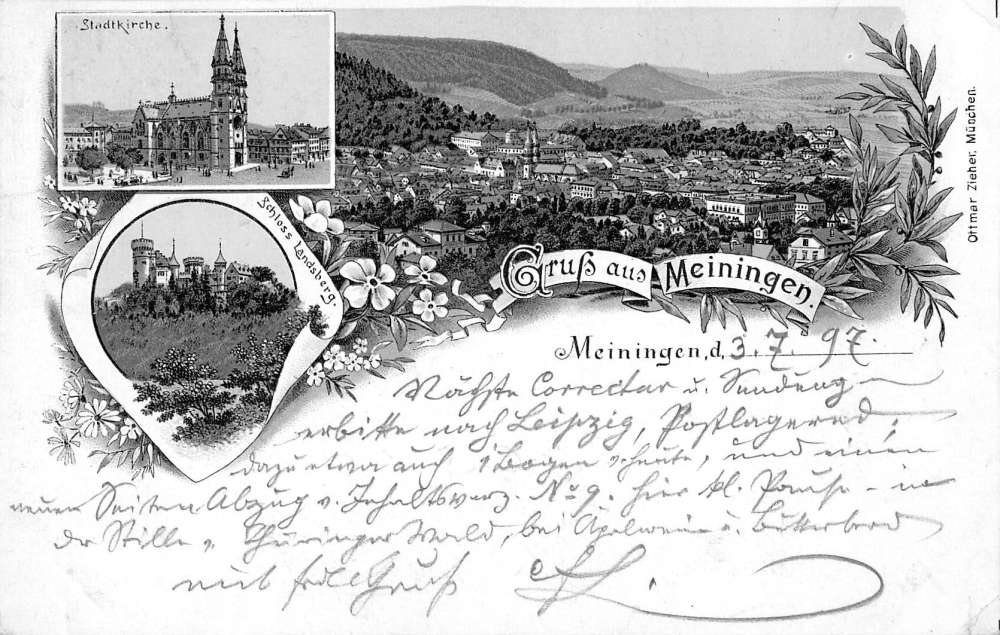 Stadtkirche.
Schloss Landsberg.
Gruß aus Meiningen.
Ottmar Zieher, München.
Meiningen, d. 3. 7. 97.
Nächste Correctur u. Sendung
erbitte nach Leipzig, Postlagernd,
dazu etwa auch 1 Bogen v. heute, und einen
neuen Seiten Abzug v. Inhaltsverz. No 9. hier kl. Pause – in
dr Stille v. Thüringer Wald, bei Äpelwein u. Butterbrod
mit frdl Gruß